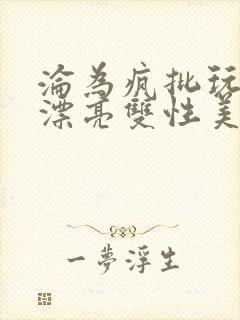 淪為瘋批玩
漂亮雙性美
一夢浮生